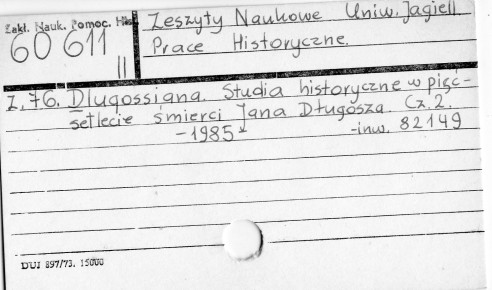 Zakł. Nauk. Pomoc. Hist
60 611
II
Zeszyty Naukowe Uniw. Jagiell.
Prace Historyczne.
Z. 76. Dlugossiana. Studia historyczne w pięć-
setlecie śmierci Jana Długosza. Cz. 2.
-1985-
-inw. 82149
DUJ 897/73. 15000